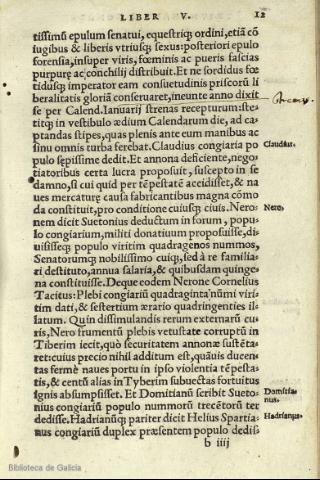 LIBER V. 12
tissimũ epulum senatui, equestriq; ordini, etiã cõ
iugibus & liberis vtriusq; sexus: posteriori epulo
forensia, insuper viris, fœminis ac pueris fascias
purpurę ac conchilij distribuit. Et ne sordidus fœ
tidusq; imperator eam consuetudinis priscorũ li
beralitatis gloriã conseruaret, ineunte anno dixit
se per Calend. Ianuarij strenas recepturum: ste-
titq; in vestibulo ædium Calendarum die, ad ca-
ptandas stipes, quas plenis ante eum manibus ac
sinu omnis turba ferebat. Claudius congiaria po
Claudius.
pulo sępissime dedit. Et annona deficiente, nego
tiatoribus certa lucra proposuit, suscepto in se
damno, si cui quid per tẽpestatẽ accidisset, & na
ues mercaturę causa fabricantibus magna cõmo
da constituit, pro conditione cuiusq; ciuis. Nero-
Nero.
nem dicit Suetonius deductum in forum, popu-
lo congiarium, militi donatiuum proposuisse, di-
uisisseq; populo viritim quadragenos nummos,
Senatorumq; nobilissimo cuiq;, sed à re familia-
ri destituto, annua salaria, & quibusdam quinge-
na constituisse. Deque eodem Nerone Cornelius
Tacitus: Plebi congiariũ quadraginta nũmi viri-
tim dati, & sestertium ærario quadringenties il-
latum. Quin dissimulandis rerum externarũ cu-
ris, Nero frumentũ plebis vetustate corruptũ in
Tiberim iecit, quò securitatem annonæ sustẽta-
ret: cuius precio nihil additum est, quãuis ducen-
tas fermè naues portu in ipso violentia tẽpesta-
tis, & centũ alias in Tyberim subuectas fortuitus
ignis absumpsisset. Et Domitianũ scribit Sueto-
Domitia-
nus.
nius congiariũ populo nummorũ trecẽtorũ ter
dedisse. Hadrianũq; pariter dicit Helius Spartia-
Hadrianus.
nus congiariũ duplex præsentem populo dedis-
b iiij
Biblioteca de Galicia